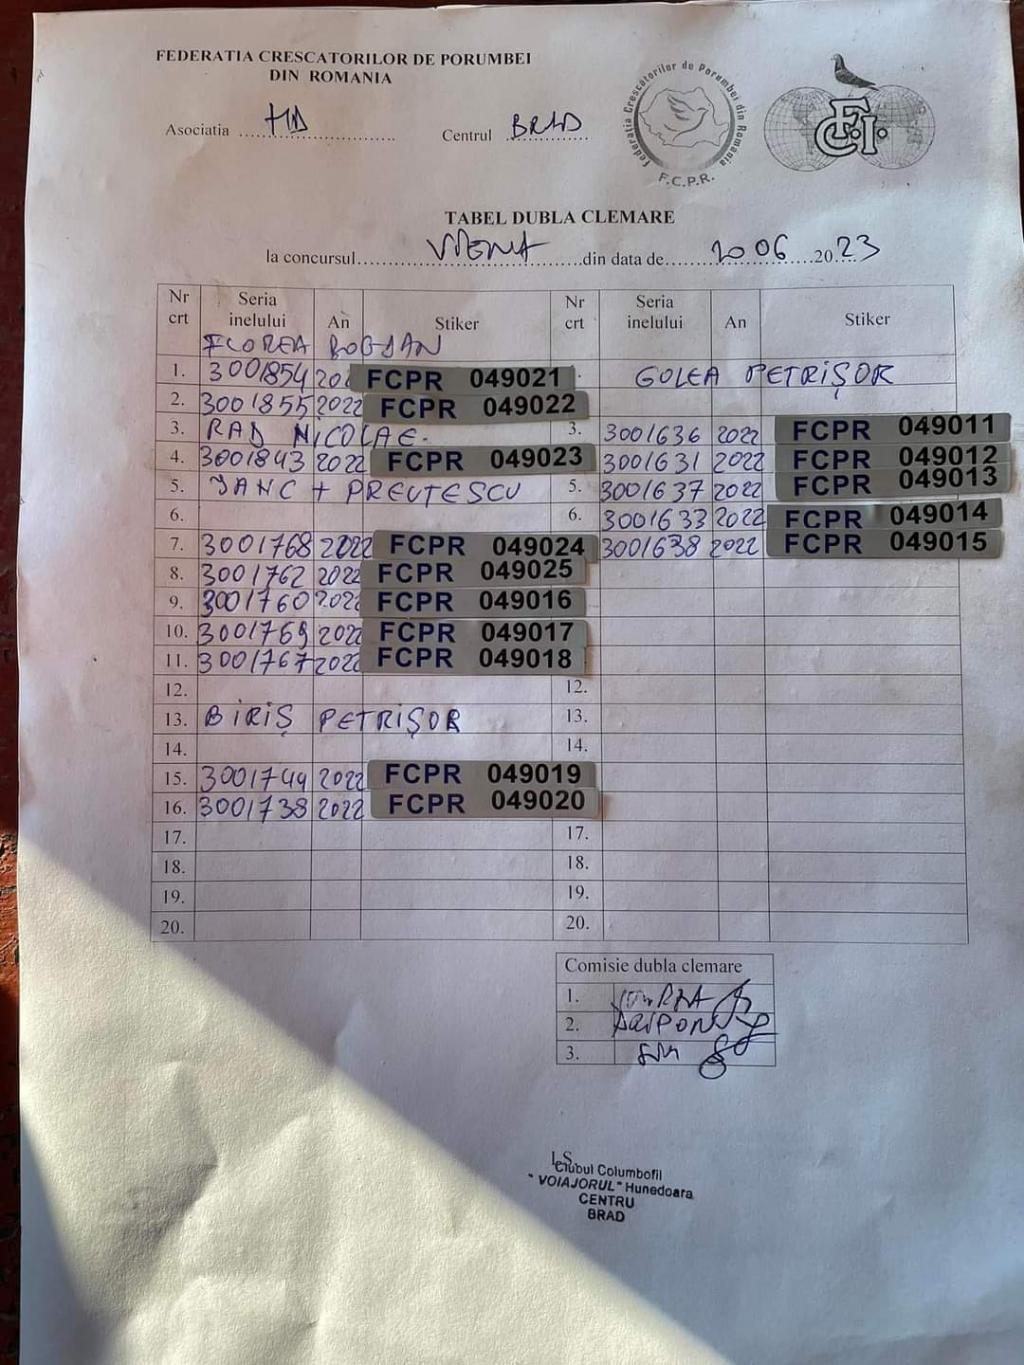 FEDERATIA CRESCATORILOR DE PORUMBEI
DIN ROMANIA
Asociatia HD Centrul BRAD
Federatia Crescatorilor de Porumbei din Romania
F.C.P.R.
F.C.I.
TABEL DUBLA CLEMARE
la concursul VIENA din data de 20 06 2023
Nr crt Seria inelului An Stiker Nr crt Seria inelului An Stiker
FLOREA BOGDAN
1. 3001854 202 FCPR 049021 GOLEA PETRIŞOR
2. 3001855 2022 FCPR 049022
3. RAD NICOLAE. 3. 3001636 2022 FCPR 049011
4. 3001843 2022 FCPR 049023 3001631 2022 FCPR 049012
5. IANC + PREUTESCU 5. 3001637 2022 FCPR 049013
6. 6. 3001633 2022 FCPR 049014
7. 3001768 2022 FCPR 049024 3001638 2022 FCPR 049015
8. 3001762 2022 FCPR 049025
9. 3001760 2022 FCPR 049016
10. 3001769 2022 FCPR 049017
11. 3001767 2022 FCPR 049018
12. 12.
13. BIRIŞ PETRIŞOR 13.
14. 14.
15. 3001744 2022 FCPR 049019
16. 3001738 2022 FCPR 049020
17. 17.
18. 18.
19. 19.
20. 20.
Comisie dubla clemare
1.
2.
3.
LS
Clubul Columbofil
"VOIAJORUL" Hunedoara
CENTRU
BRAD